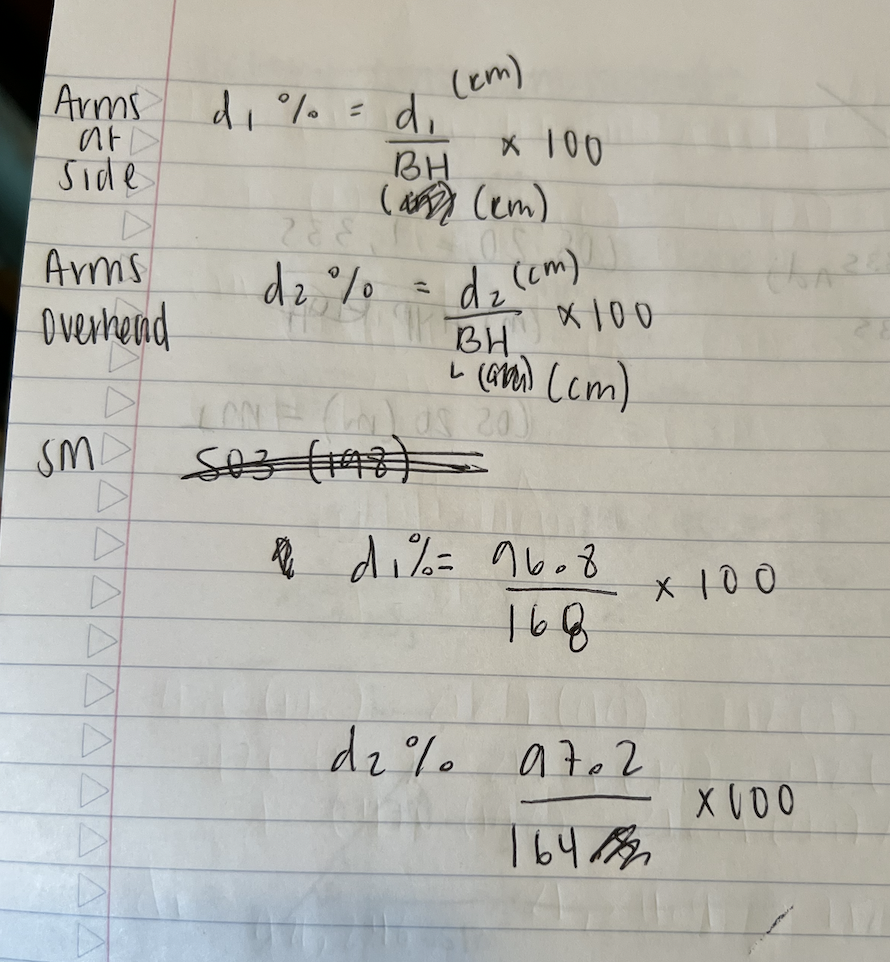 Arms at side d₁ % = d₁ (cm) / BH (cm) × 100
Arms Overhead d₂ % = d₂ (cm) / BH (cm) × 100
SM 503 (198)
d₁% = 96.8 / 168 × 100
d₂ % 97.2 / 164 × 100